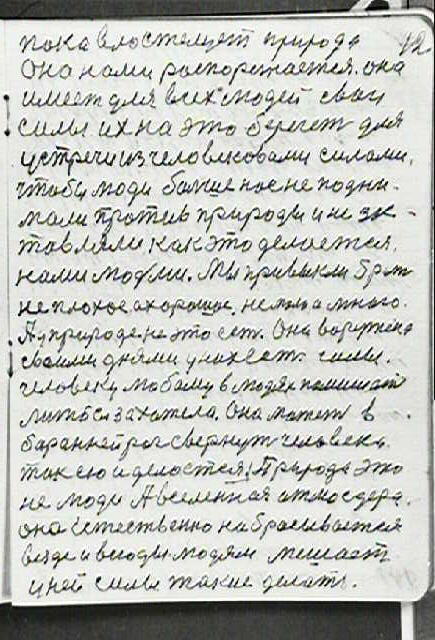 пока властелует природа 42.
Она нами распоряжается. она
имеет для всех людей свои
силы их на это бережет для
устречи из человековами силами,
чтобы люди больше нос не подни-
мали против природы и не зк-
товляли как это делается,
нами людми. Мы привыкли брать
не плохое а хорошое. не мало а много.
А у природе на это есть. Она
своими днями у нас есть силы.
человеку любому в людях помишает
лишбы захотела. Она может в
бараний рог свернут человека.
так ею и делается. Природа это
не люди А вселенная атмосфера.
она естественно набрасывается
везде и всюды людям мешает
у ней силы такие делать.